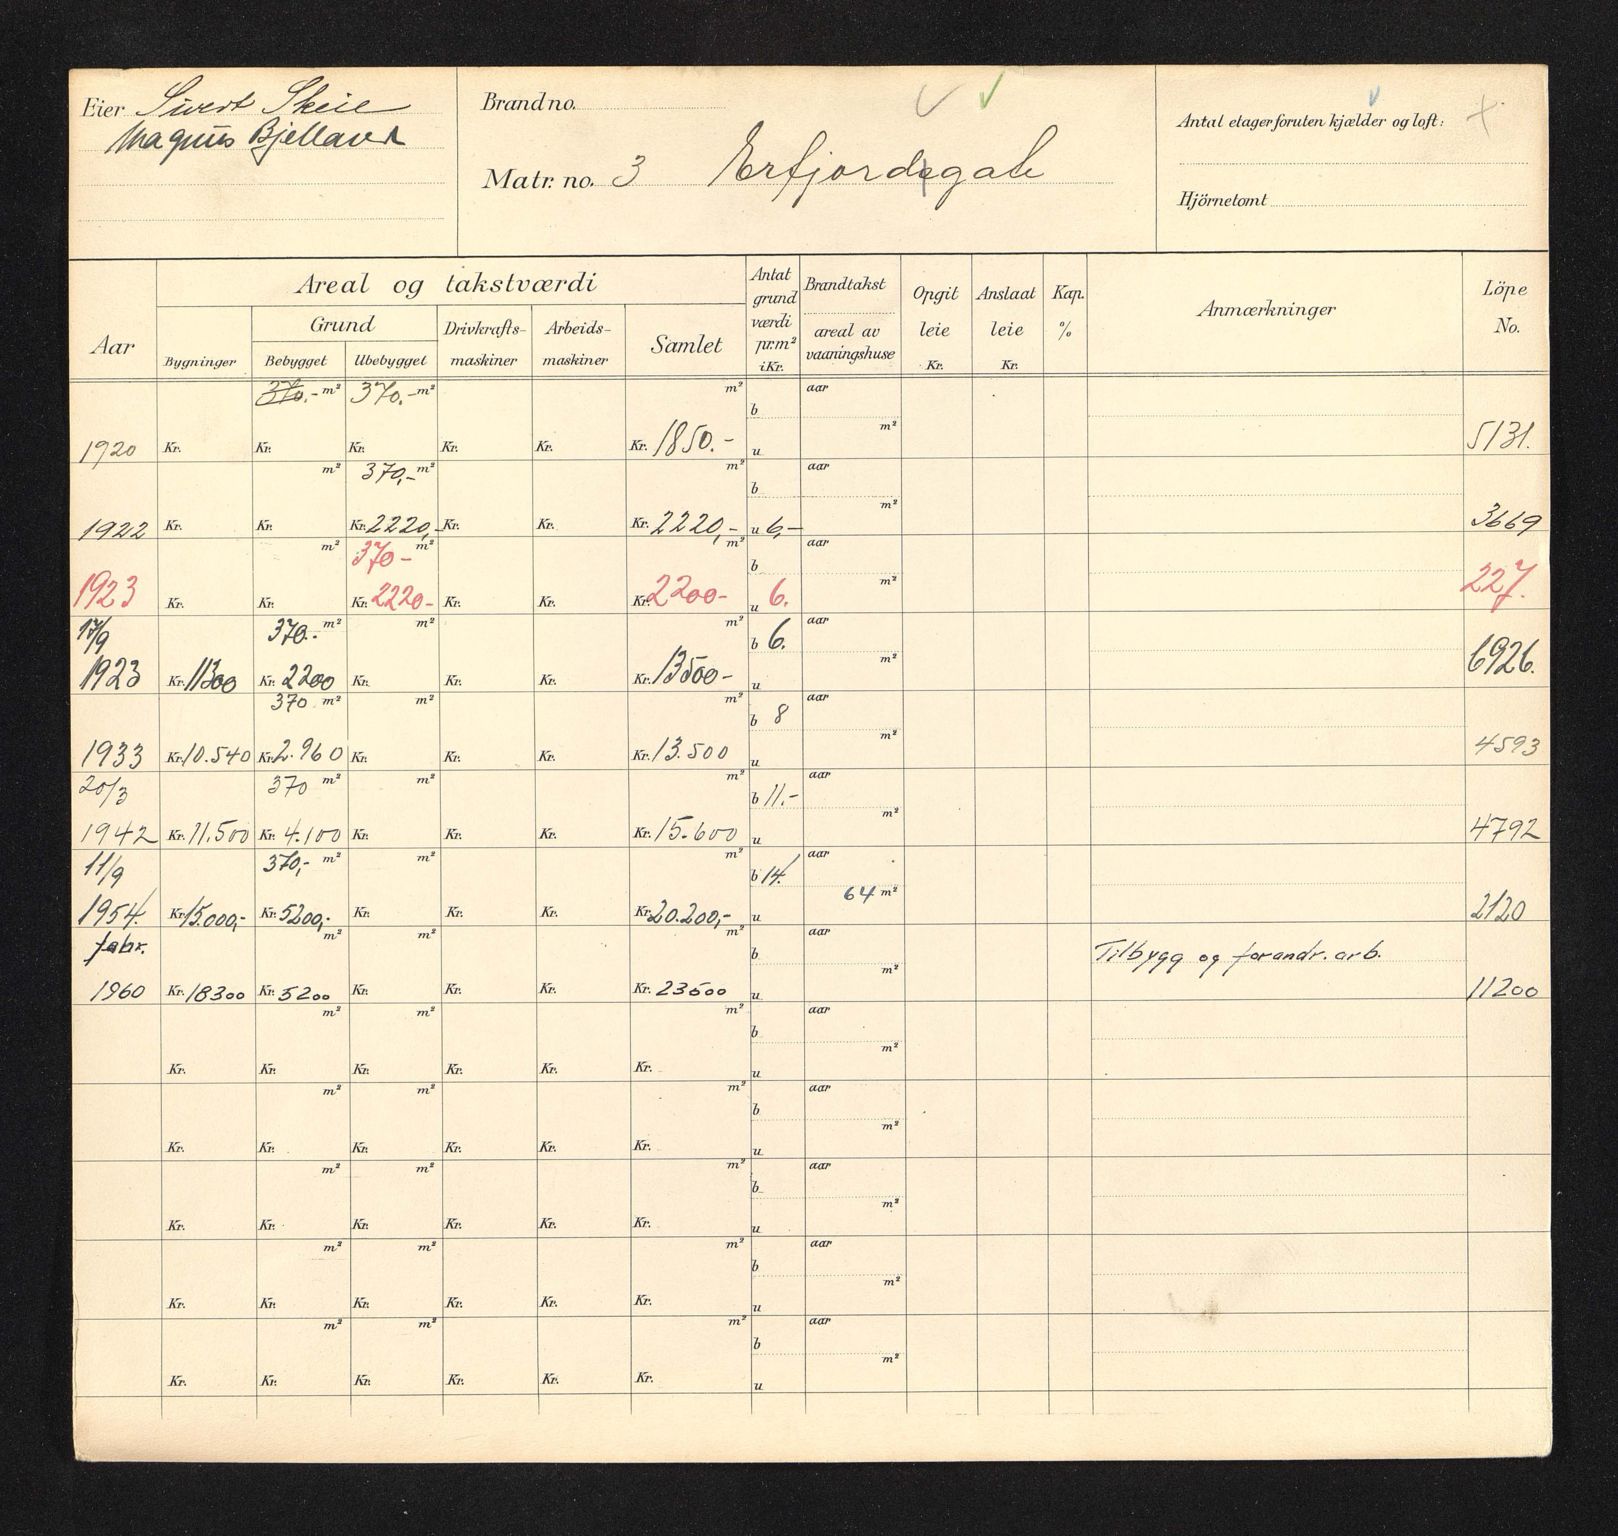 Eier Sivert Skeie
Magnus Bjelland
Brandno.
Matr. no. 3 Erfjordsgate
Antal etager foruten kjælder og loft: +
Hjörnetomt
Aar
Areal og takstværdi
Bygninger
Grund
Bebygget Ubebygget
Drivkrafts-
maskiner
Arbeids-
maskiner
Samlet
Antat
grund
værdi
pr. m²
i Kr.
Brandtakst
areal av
vaaningshuse
Opgit
leie
Kr.
Anslaat
leie
Kr.
Kap.
%
Anmærkninger
Löpe
No.
370.- m² 370.- m² m² b aar
m²
1920 Kr. Kr. Kr. Kr. Kr. Kr. 1850.- u 5131.
m² 370,- m² m² b aar
m²
1922 Kr. Kr. Kr. 2220,- Kr. Kr. Kr. 2220,- u 6,- 3669
m² 370- m² m² b aar
m²
1923 Kr. Kr. Kr. 2220- Kr. Kr. Kr. 2200- u 6. 227.
17/9 370.- m² m² m² b 6. aar
m²
1923 Kr. 11300 Kr. 2200 Kr. Kr. Kr. Kr. 13500- u 6926.
370 m² m² m² b 8 aar
m²
1933 Kr. 10.540 Kr. 2.960 Kr. Kr. Kr. Kr. 13.500 u 4593
20/3 370 m² m² m² b 11.- aar
m²
1942 Kr. 11.500 Kr. 4.100 Kr. Kr. Kr. Kr. 15.600 u 4792
11/9 370,- m² m² m² b 14. aar
64 m²
1954. Kr. 15.000,- Kr. 5200,- Kr. Kr. Kr. Kr. 20.200,- u 2120
febr. m² m² m² b aar
m² Tilbygg og forandr. arb.
1960 Kr. 18300 Kr. 5200 Kr. Kr. Kr. Kr. 23500 u 11200
m² m² m² b aar
m²
Kr. Kr. Kr. Kr. Kr. Kr. u
m² m² m² b aar
m²
Kr. Kr. Kr. Kr. Kr. Kr. u
m² m² m² b aar
m²
Kr. Kr. Kr. Kr. Kr. Kr. u
m² m² m² b aar
m²
Kr. Kr. Kr. Kr. Kr. Kr. u
m² m² m² b aar
m²
Kr. Kr. Kr. Kr. Kr. Kr. u